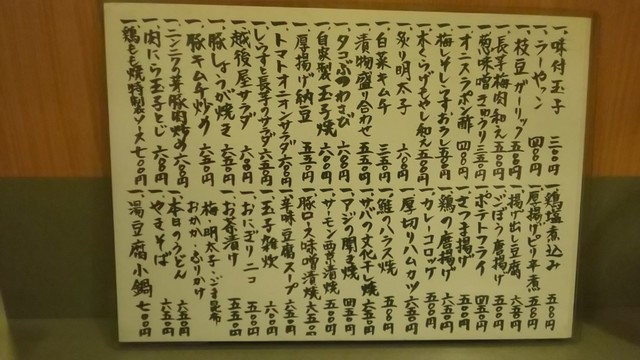 一、味付玉子 三〇〇円
一、ラーヤッコ 四〇〇円
一、枝豆ガーリック 五五〇円
一、長芋梅肉和え 五五〇円
一、葱味噌きゅうり 三五〇円
一、オニスラポン酢 四五〇円
一、梅しそしらすおろし 五五〇円
一、木くらげもやし和え 五五〇円
一、炙り明太子 六〇〇円
一、白菜キムチ 三五〇円
一、漬物盛り合わせ 五五〇円
一、タコぶつわさび 六〇〇円
一、自家製玉子焼 六〇〇円
一、厚揚げ納豆 五五〇円
一、トマトオニオンサラダ 六〇〇円
一、しらすと長芋のサラダ 六五〇円
一、越後屋サラダ 六〇〇円
一、豚しょうが焼き 六五〇円
一、豚キムチ炒め 六五〇円
一、ニンニクの芽豚肉炒め 六八〇円
一、肉にら玉子とじ 六八〇円
一、鶏もも焼特製ソース 七〇〇円
一、鶏塩煮込み 五五〇円
一、厚揚げピリ辛煮 五五〇円
一、揚げ出し豆腐 五五〇円
一、ごぼう唐揚げ 六五〇円
一、ポテトフライ 四五〇円
一、さつま揚げ 五五〇円
一、鶏の唐揚げ 六五〇円
一、カレーコロッケ 五五〇円
一、厚切りハムカツ 六五〇円
一、鮭ハラス焼 五五〇円
一、サバの文化干し焼 六五〇円
一、アジの開き焼 四五〇円
一、サーモン西京漬焼 五五〇円
一、豚ロース味噌漬焼 六五〇円
一、辛味豆腐スープ 五五〇円
一、玉子雑炊 六〇〇円
一、おにぎり二コ 五五〇円
一、お茶漬け 五五〇円
梅・明太子・ごま昆布
おかか・ふりかけ
一、本日のうどん 六五〇円
一、やきそば 六五〇円
一、湯豆腐小鍋 七〇〇円